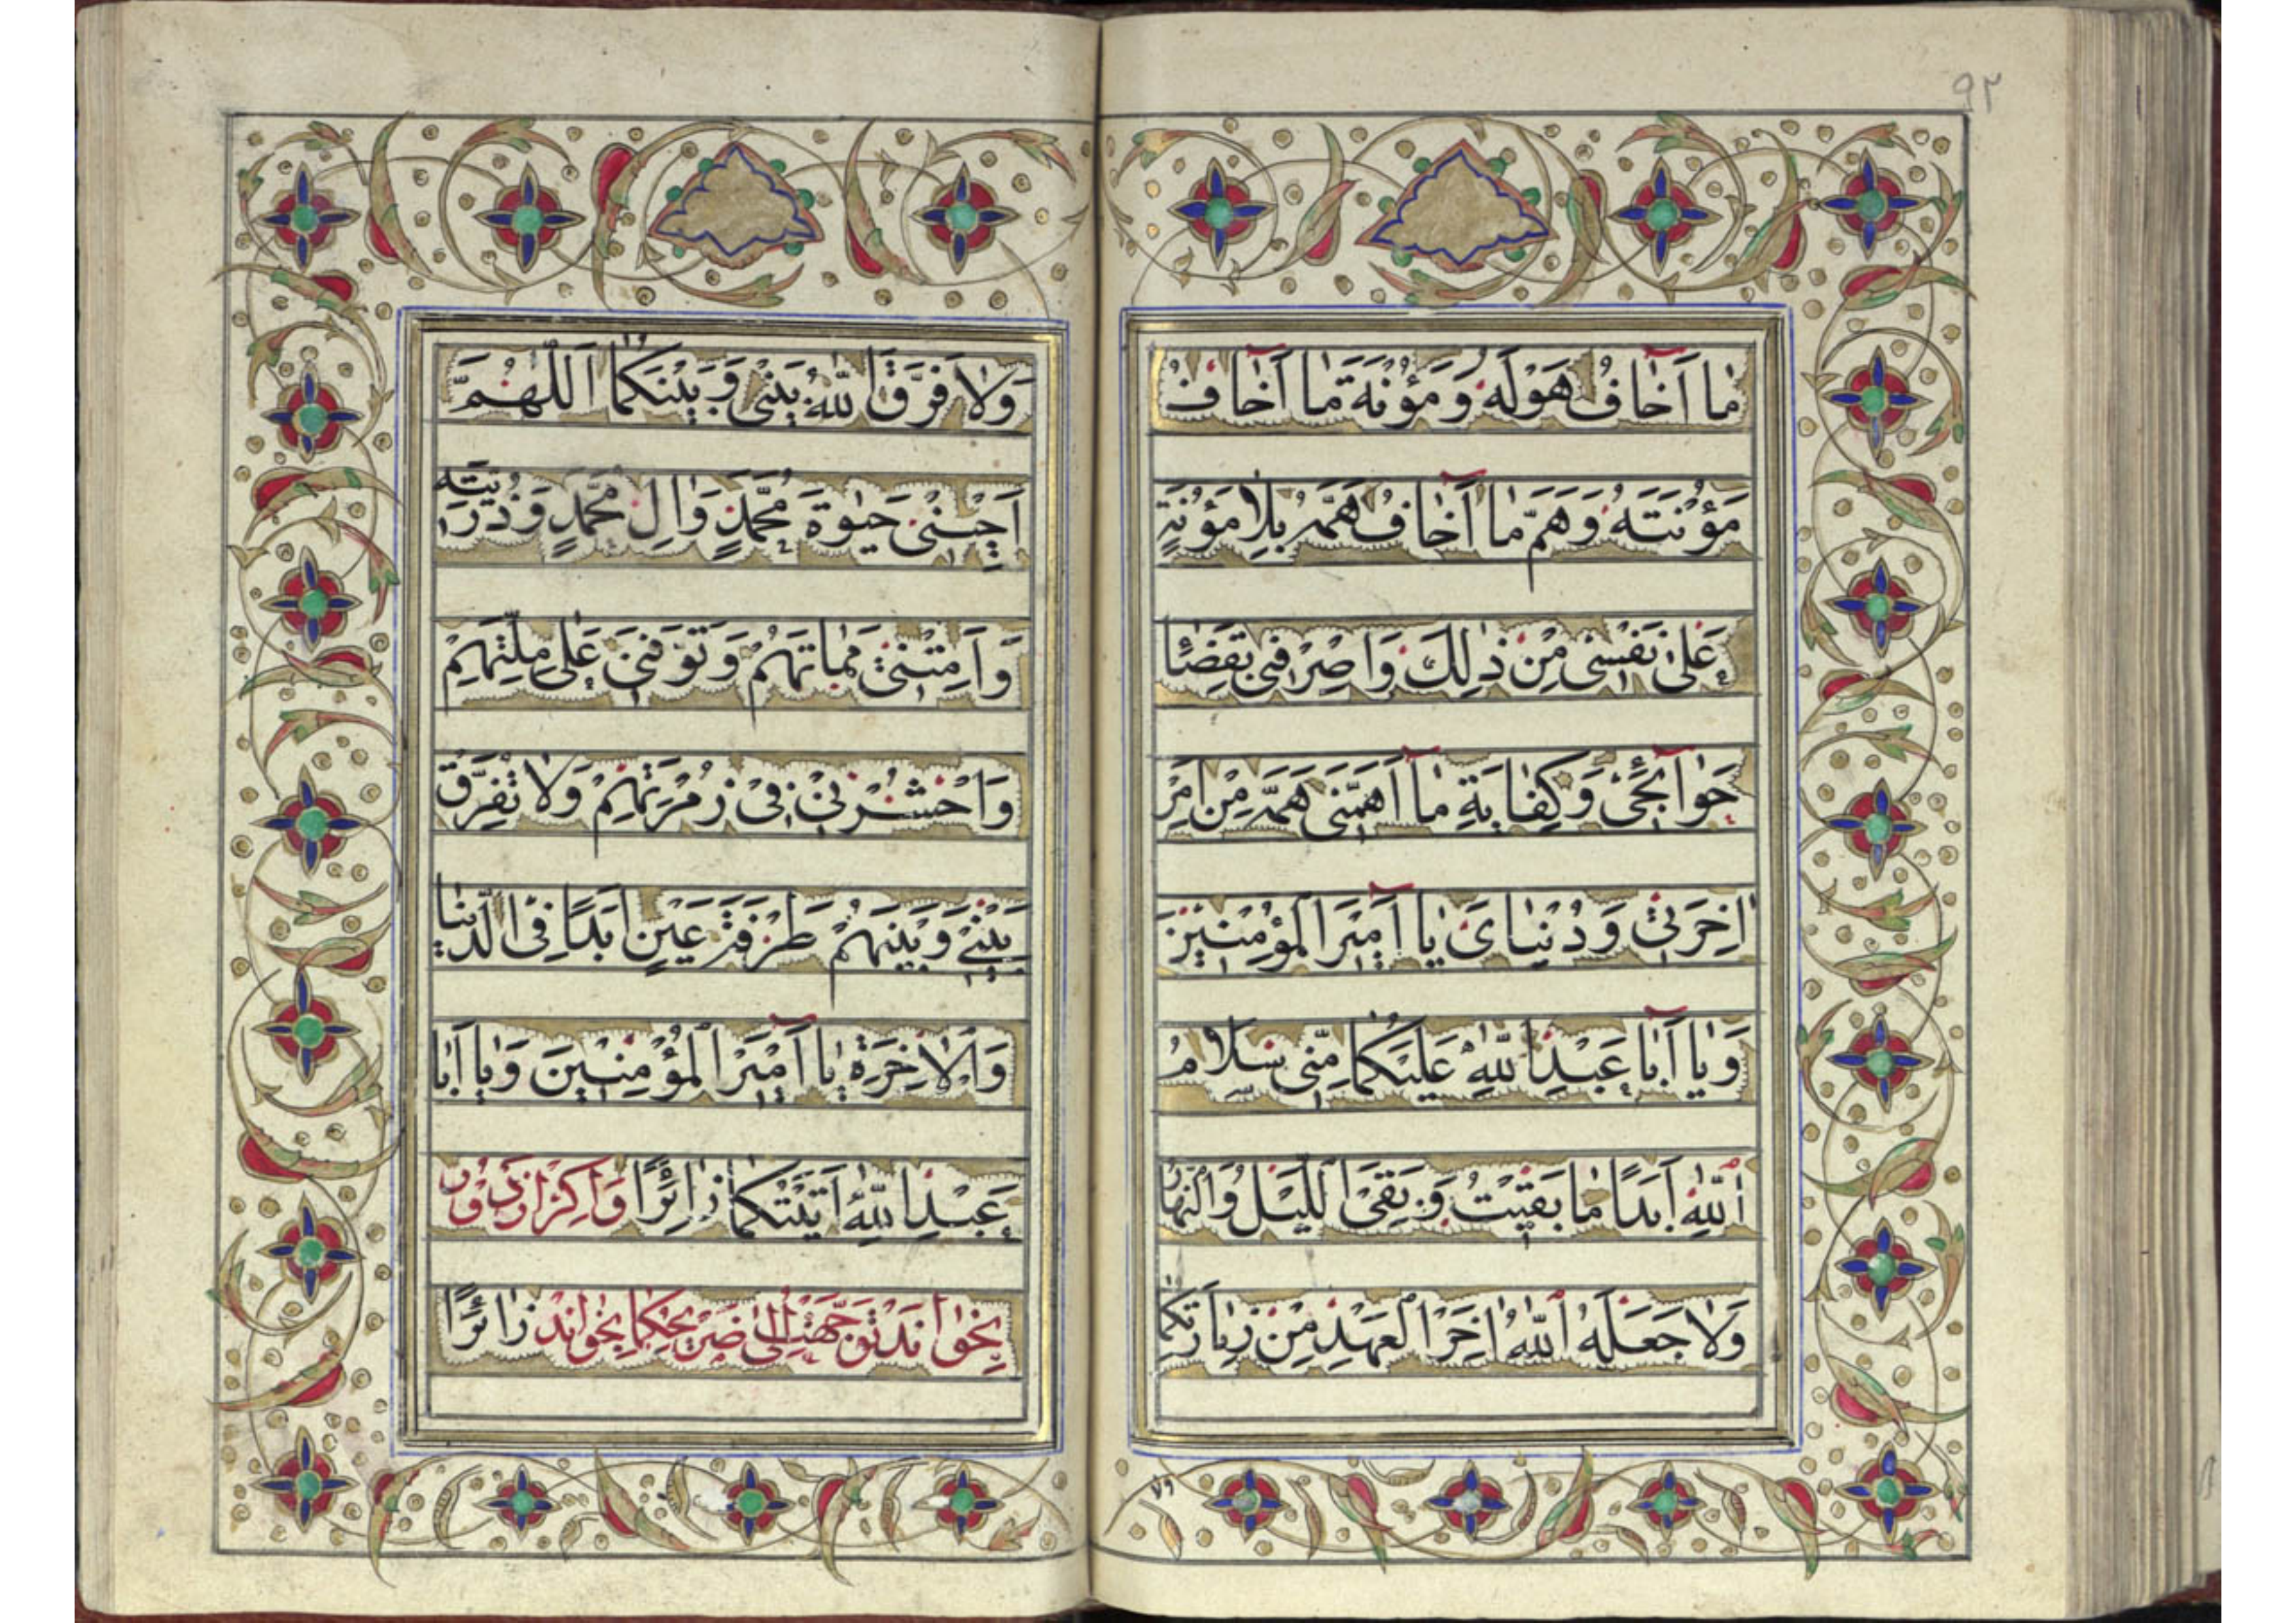 ٩٢
مٰا اَخٰافُ هَوْلَهُ وَ مَؤُنَةَ مٰا اَخٰافُ
مَؤُنَتَهُ وَ هَمَّ مٰا اَخٰافُ هَمَّهُ بِلٰا مَؤُنَةٍ
عَلیٰ نَفْسی مِنْ ذٰلِكَ وَ اصْرِفْنی بِقَضٰاۤءِ
حَوٰاۤئِجیٖ وَ كِفٰایَةِ مٰا اَهَمَّنی هَمُّهُ مِنْ اَمْرِ
اٰخِرَتیٖ وَ دُنْیٰایَ یٰا اَمیٖرَ الْمُؤْمِنیٖنَ
وَ یٰا اَبٰا عَبْدِ اللّٰهِ عَلَیْكُمٰا مِنّی سَلٰامُ
اللّٰهِ اَبَدًا مٰا بَقیٖتُ وَ بَقِیَ اللَّیْلُ وَ النَّهٰارُ
وَلٰا جَعَلَهُ اللّٰهُ اٰخِرَ الْعَهْدِ مِنْ زِیٰارَتِكُمٰا
ولا
وَلٰا فَرَّقَ اللّٰهُ بَیْنی وَ بَیْنَكُمٰا اَللّٰهُمَّ
اَحْیِنیٖ حَیٰوةَ مُحَمَّدٍ وَ اٰلِ مُحَمَّدٍ وَ ذُرِّیَّتِهِ
وَ اَمِتْنیٖ مَمٰاتَهُمْ وَ تَوَفَّنیٖ عَلیٰ مِلَّتِهِمْ
وَ احْشُرْنیٖ فیٖ زُمْرَتِهِمْ وَلٰا تُفَرِّقْ
بَیْنیٖ وَ بَیْنَهُمْ طَرْفَةَ عَیْنٍ اَبَدًا فِی الدُّنْیٰا
وَ الْاٰخِرَةِ یٰا اَمیٖرَ الْمُؤْمِنیٖنَ وَ یٰا اَبٰا
عَبْدِ اللّٰهِ اَتَیْتُكُمٰا زٰائِرًا وَ اكر از دور
بخواند توجهت الی ضریحكما بخواند زٰائِرًا